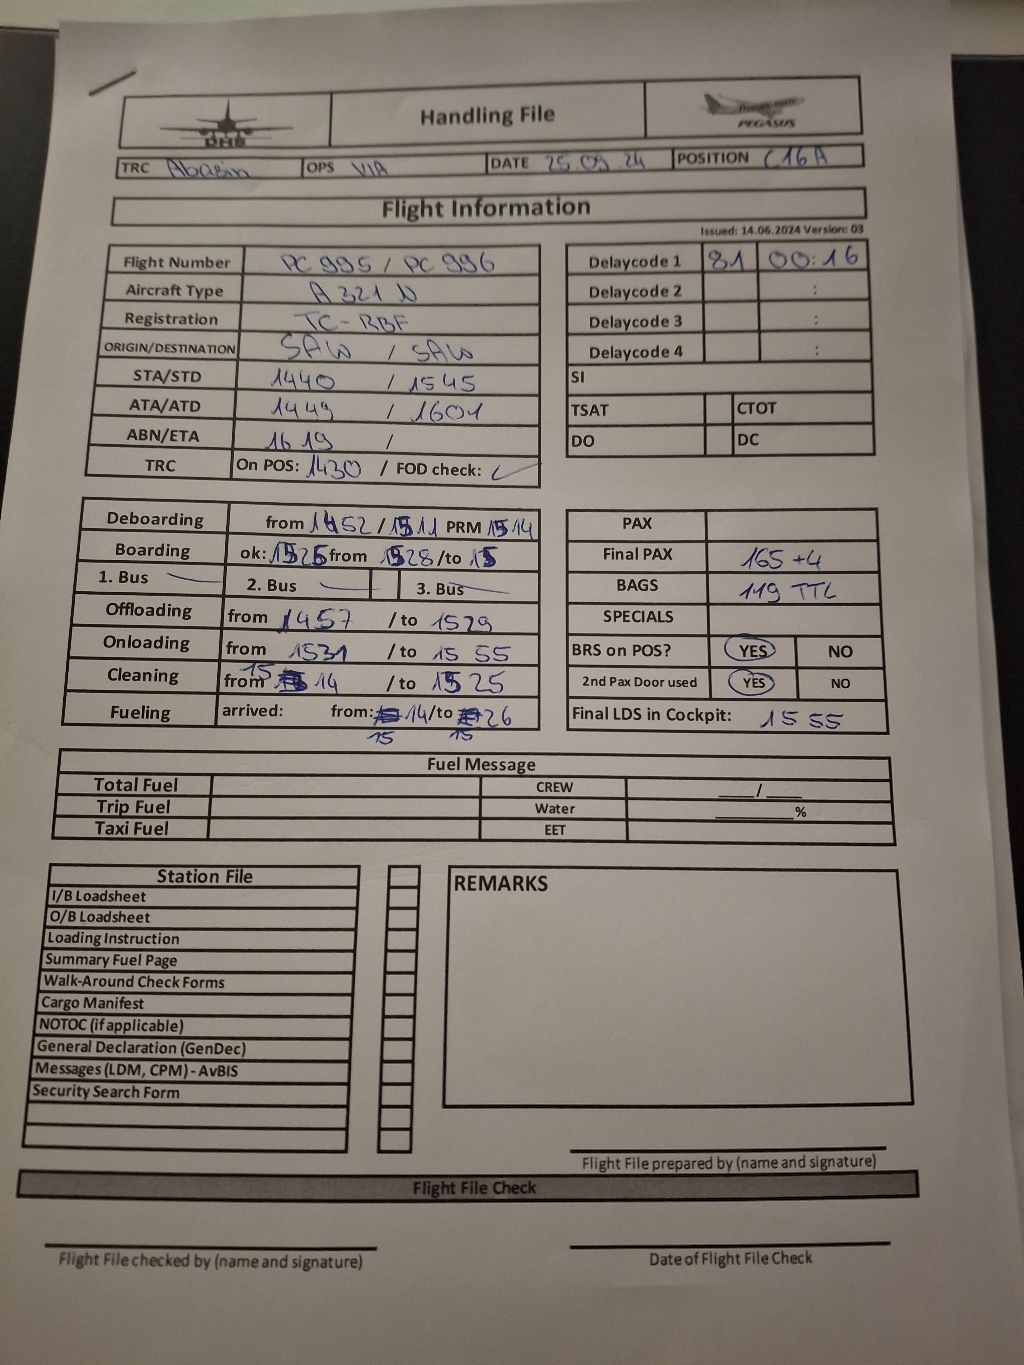 DHS
Handling File
flypgs.com
PEGASUS
TRC Abasin OPS VIA DATE 25.09.24 POSITION C16A
Flight Information
Issued: 14.06.2024 Version: 03
Flight Number PC 995 / PC 996
Aircraft Type A 321 N
Registration TC-RBF
ORIGIN/DESTINATION SAW / SAW
STA/STD 1440 / 1545
ATA/ATD 1449 / 1601
ABN/ETA 16 19 /
TRC On POS: 1430 / FOD check:
Delaycode 1 81 00:16
Delaycode 2 :
Delaycode 3 :
Delaycode 4 :
SI
TSAT CTOT
DO DC
Deboarding from 1452 / 1511 PRM 1514
Boarding ok: 1525 from 1528 /to 15
1. Bus 2. Bus 3. Bus
Offloading from 1457 / to 1529
Onloading from 1531 / to 15 55
Cleaning from 15 14 / to 1525
Fueling arrived: from: 15 14 /to 15 26
PAX
Final PAX 165 +4
BAGS 119 TTL
SPECIALS
BRS on POS? YES NO
2nd Pax Door used YES NO
Final LDS in Cockpit: 15 55
Fuel Message
Total Fuel CREW ___/___
Trip Fuel Water ______%
Taxi Fuel EET
Station File
I/B Loadsheet
O/B Loadsheet
Loading Instruction
Summary Fuel Page
Walk-Around Check Forms
Cargo Manifest
NOTOC (if applicable)
General Declaration (GenDec)
Messages (LDM, CPM) - AvBIS
Security Search Form
REMARKS
Flight File prepared by (name and signature)
Flight File Check
Flight File checked by (name and signature)
Date of Flight File Check